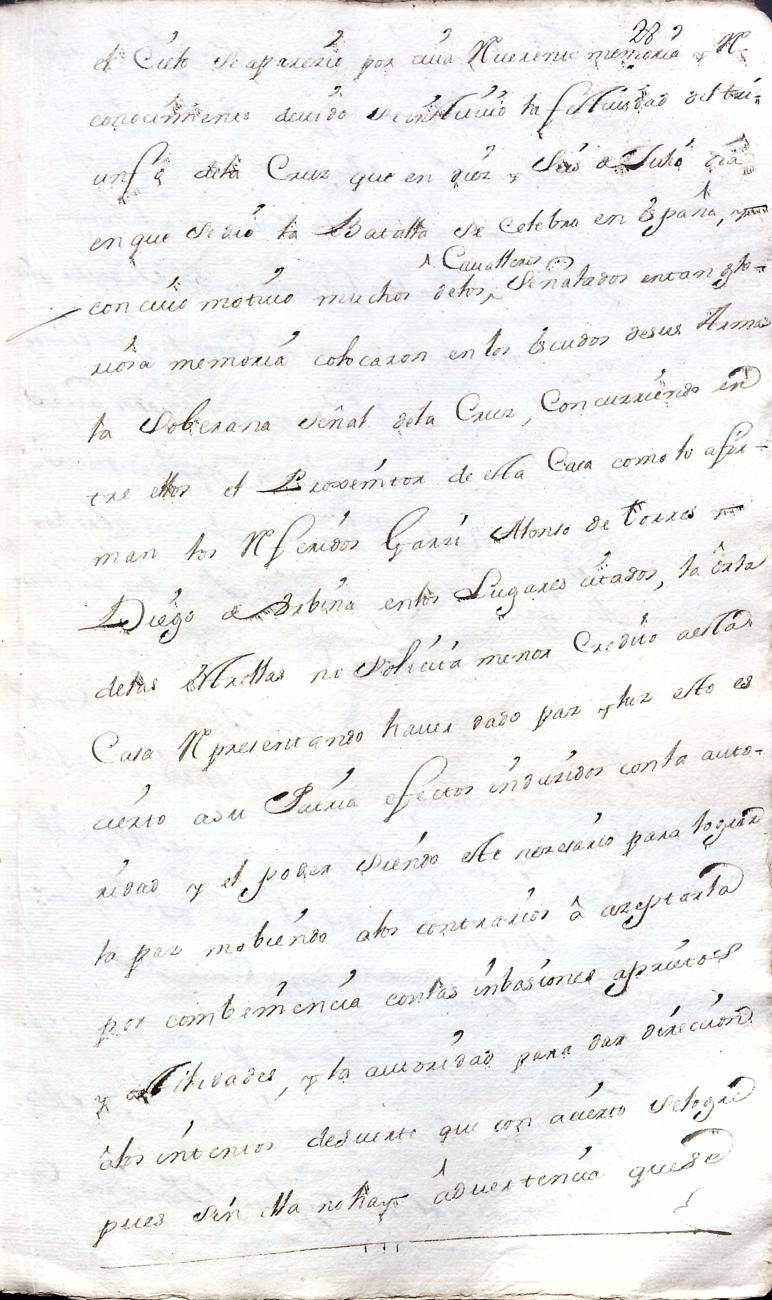 28
el Cielo se aparecio por cuia Reuerente memoria y Re-
conocimiento deuido se instituió la festiuidad del tri-
unfo dela Cruz que en diez y Seis de Julio dia
en que se dió la Batalla se celebra en España, y
con cuio motiuo muchos delos Caualleros Señalados entan glo-
riosa memoria colocaron en los Escudos desus Arma
la Soberana señal dela Cruz, Concurriendo en
tre ellos el Projenitor de esta Casa como lo afir-
man los Referidos Garzi Alonso de torres y
Diego de Urbina enlos Lugares citados, la orla
delas estrellas no Solicita menor Credito aesta
Casa Representando hauer dado paz y luz esto es
cierto asu Patria efectos induzidos conla auto-
ridad y el poder siendo este nezesario para lograr
la paz mobiendo alos contrarios â azeptarla
por combeniencia conlas inbasiones aprietos
y ostilidades, y la autoridad para dar direcion
âlos intentos desuerte que con acierto selogre
pues sin ella no hay âduertencia quese